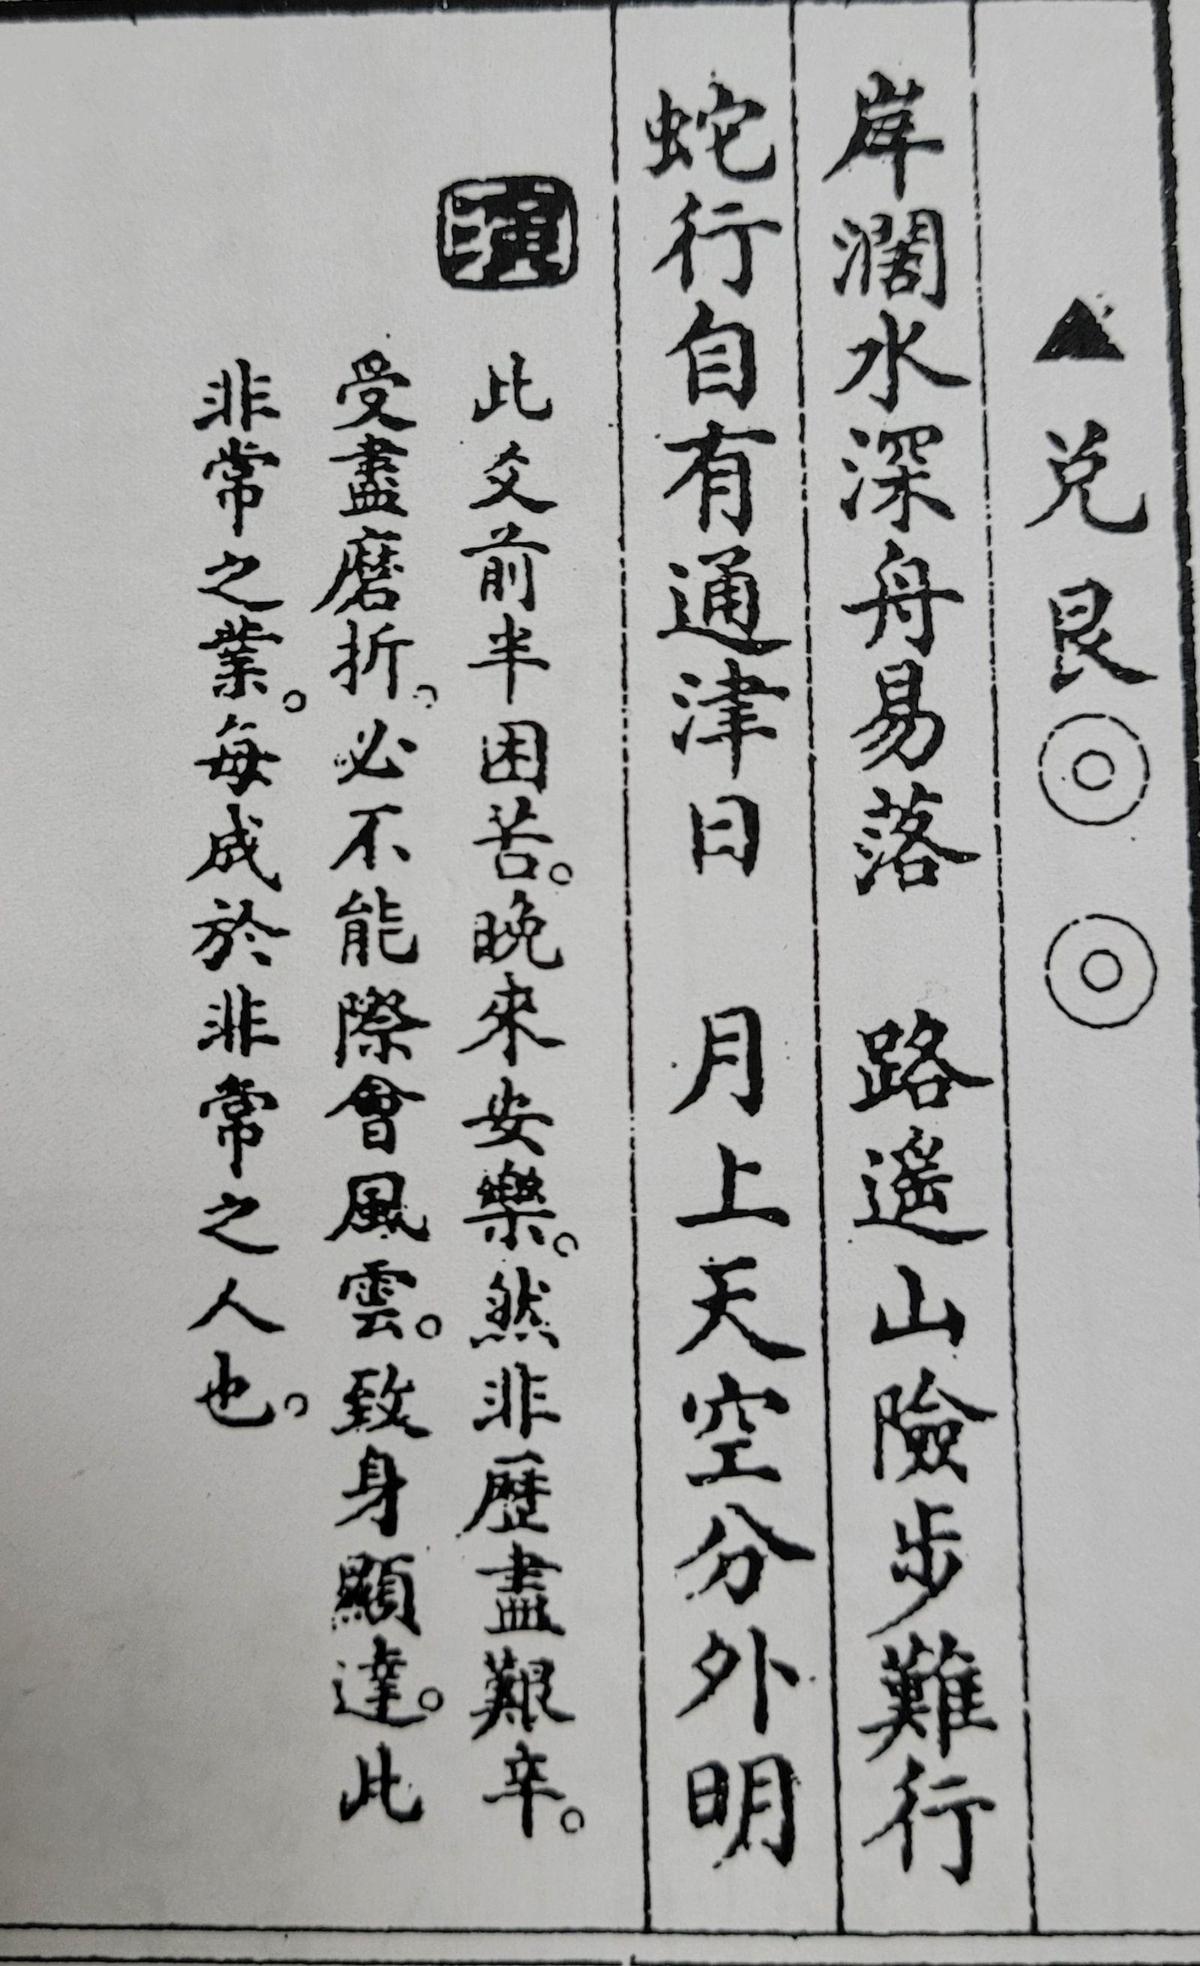 ▲兌艮◎ ◎
岸濶水深舟易落 路遙山險步難行
蛇行自有通津日 月上天空分外明
演
此爻前半困苦。晚來安樂。然非歷盡艱辛。
受盡磨折。必不能際會風雲。致身顯達。此
非常之業。每成於非常之人也。